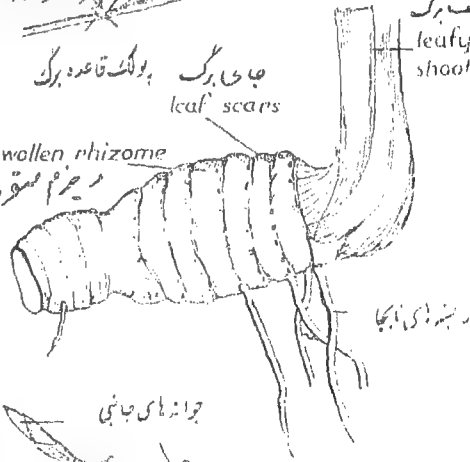 برگ
leafy
shoot
جای برگ
پولک قاعده برگ
leaf scars
wollen rhizome
ریزم متو
ریشه های نابجا
جوانه های جانبی